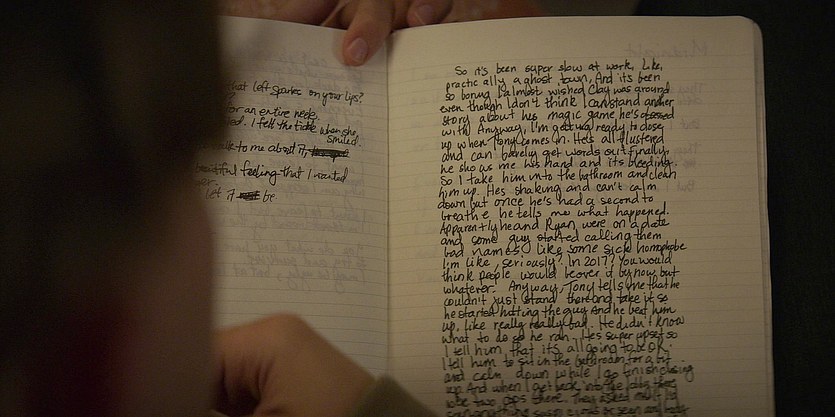 that left sparks on your lips?
for an entire week.
I felt the tide when she,
smiled.
talk to me about it,
beautiful feeling that I wanted
let it be
So it's been super slow at work. Like,
practically a ghost town. And its been
so boring I almost wished Clay was around
even though I don't think I can stand another
story about his magic game he's obsessed
with. Anyway, I'm getting ready to close
up when Tony comes in. He's all flustered
and can barely get words out. Finally,
he shows me his hand and its bleeding.
So I take him into the bathroom and clean
him up. Hes shaking and can't calm
down but once he's had a second to
breathe he tells me what happened.
Apparently he and Ryan were on a date
and some guy started calling them
bad names, like some sick homophobe
I'm like, seriously? In 2017? You would
think people would be over it by now but
whatever. Anyway, Tony tells me that he
couldn't just stand there and take it so
he started hitting the guy And he beat him
up, like really really bad. He didn't know
what to do so he ran. Hes super upset so
I tell him that it's all going to be OK.
I tell him to sit in the bathroom for a bit
and calm down while I go finish closing
up. And when I get back into the lobby there
are two cops there. They asked me if I'd
seen anything